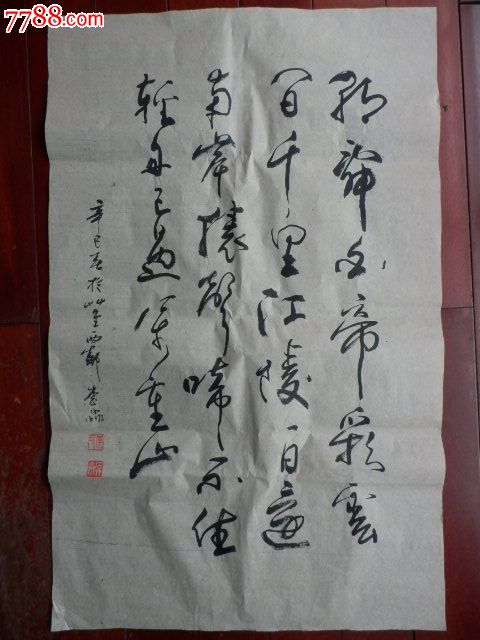 7788.com
朝辭白帝彩雲
間千里江陵一日還
兩岸猿聲啼不住
輕舟已過萬重山
辛巳春於